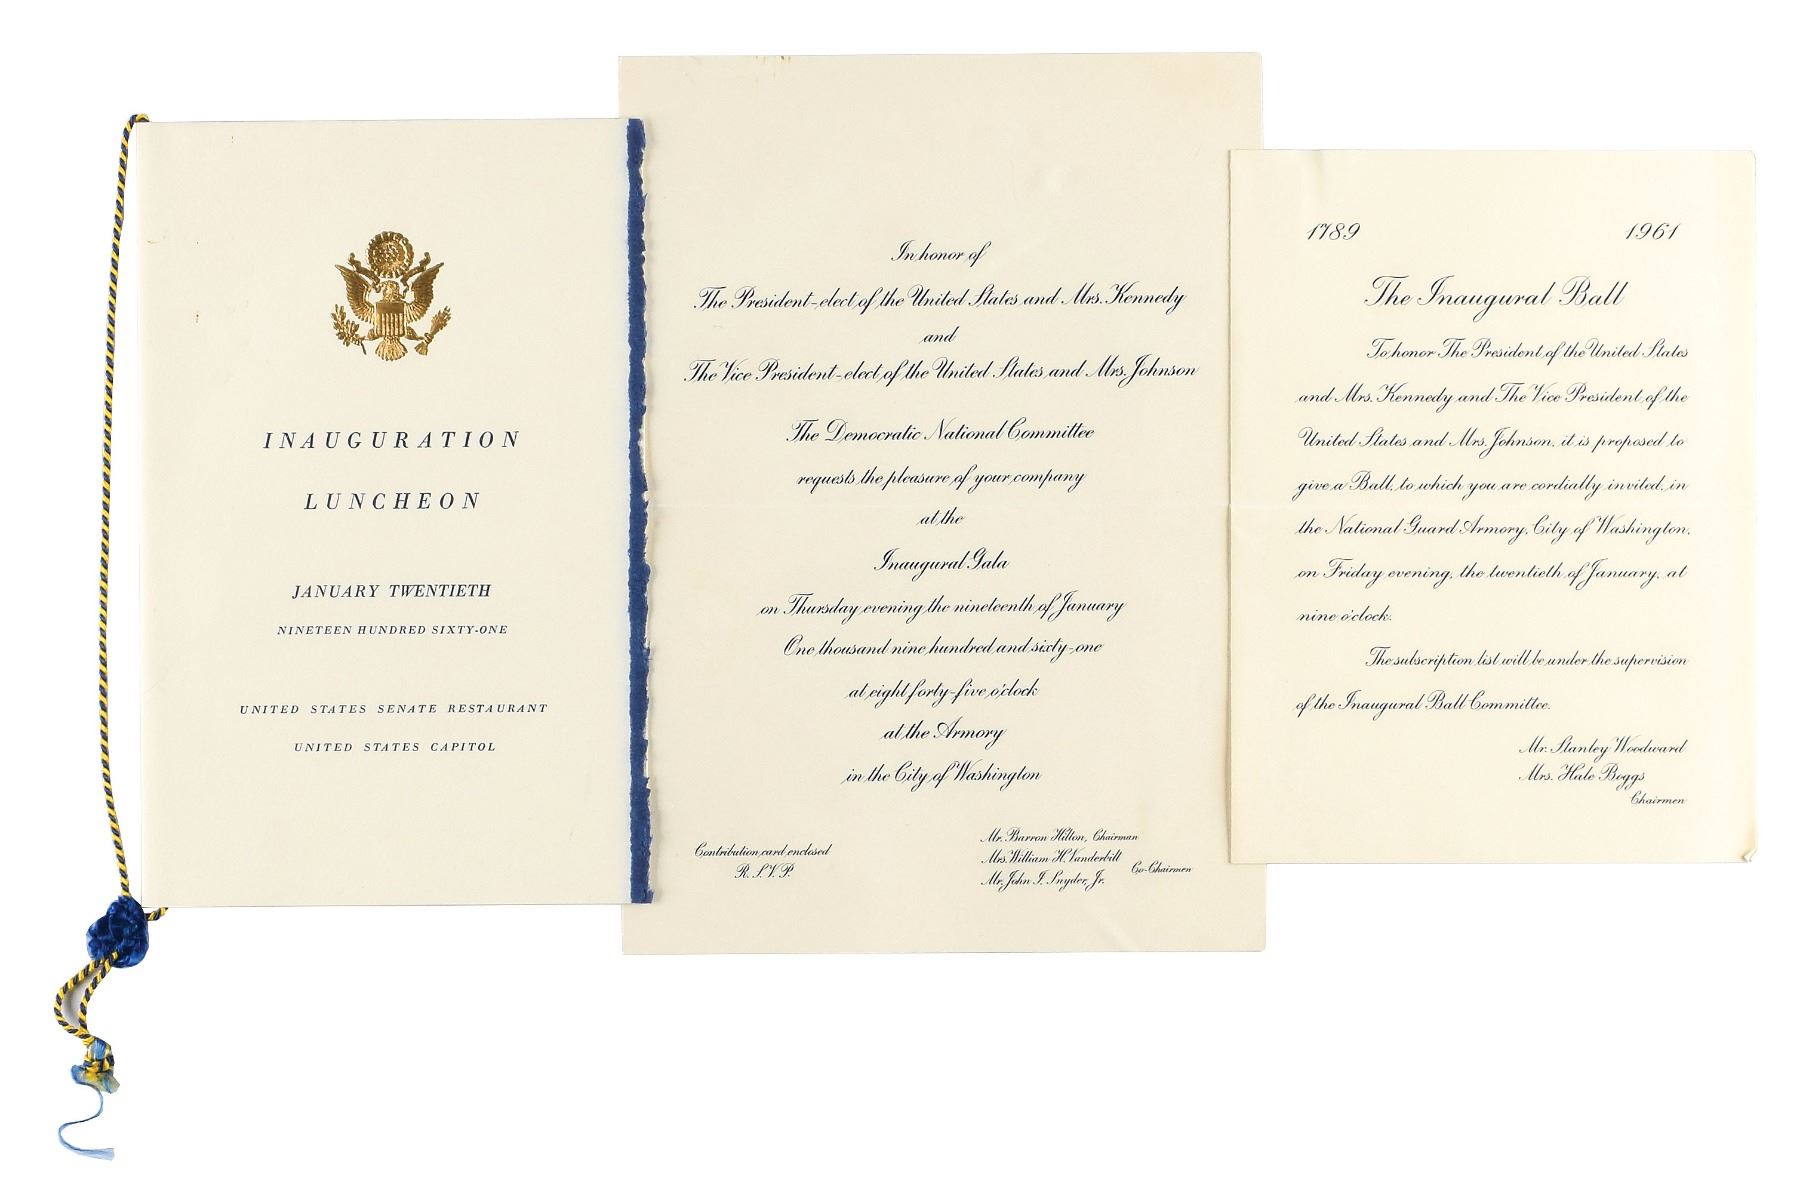 INAUGURATION
LUNCHEON
JANUARY TWENTIETH
NINETEEN HUNDRED SIXTY-ONE
UNITED STATES SENATE RESTAURANT
UNITED STATES CAPITOL
In honor of
The President-elect of the United States and Mrs. Kennedy
and
The Vice President-elect of the United States and Mrs. Johnson
The Democratic National Committee
requests the pleasure of your company
at the
Inaugural Gala
on Thursday evening the nineteenth of January
One thousand nine hundred and sixty-one
at eight forty-five o'clock
at the Armory
in the City of Washington
Contribution card enclosed
R.S.V.P.
Mr. Barron Hilton, Chairman
Mrs. William H. Vanderbilt
Mr. John I. Snyder, Jr.
Co-Chairmen
1789 1961
The Inaugural Ball
To honor The President of the United States
and Mrs. Kennedy and The Vice President of the
United States and Mrs. Johnson, it is proposed to
give a Ball, to which you are cordially invited, in
the National Guard Armory, City of Washington,
on Friday evening, the twentieth of January, at
nine o'clock.
The subscription list will be under the supervision
of the Inaugural Ball Committee.
Mr. Stanley Woodward
Mrs. Hale Boggs
Chairmen